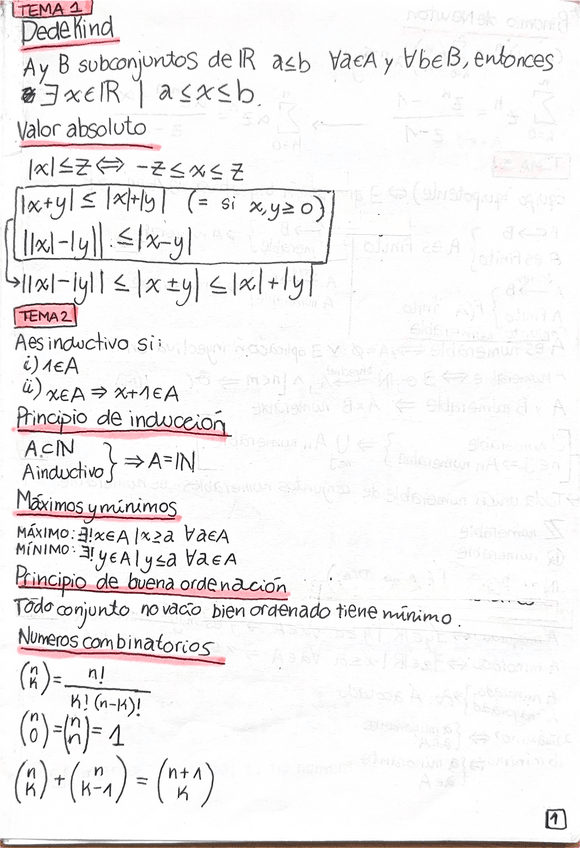 TEMA 1
Dedekind
A y B subconjuntos de ℝ a≤b ∀a∈A y ∀b∈B, entonces
∃x∈ℝ | a≤x≤b.
Valor absoluto
|x|≤z ⟺ -z≤x≤z
|x+y| ≤ |x|+|y| (= si x,y≥0)
||x|-|y|| ≤ |x-y|
→ ||x|-|y|| ≤ |x±y| ≤ |x|+|y|
TEMA 2
A es inductivo si:
i) 1∈A
ii) x∈A ⇒ x+1∈A
Principio de inducción
A⊂ℕ
A inductivo } ⇒ A=ℕ
Máximos y mínimos
MÁXIMO: ∃!x∈A | x≥a ∀a∈A
MÍNIMO: ∃!y∈A | y≤a ∀a∈A
Principio de buena ordenación
Todo conjunto no vacío bien ordenado tiene mínimo.
Numeros combinatorios
(n K) = n! / K!(n-K)!
(n 0) = (n n) = 1
(n K) + (n K-1) = (n+1 K)
1